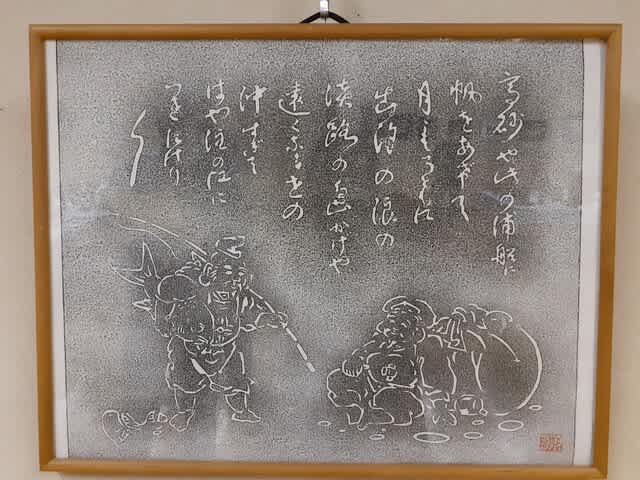 高砂や此の浦船に
帆をあげて
月もろともに
出汐の浪の
淡路の島かげや
遠くなるをの
沖すぎて
はや住の江に
つきにけり